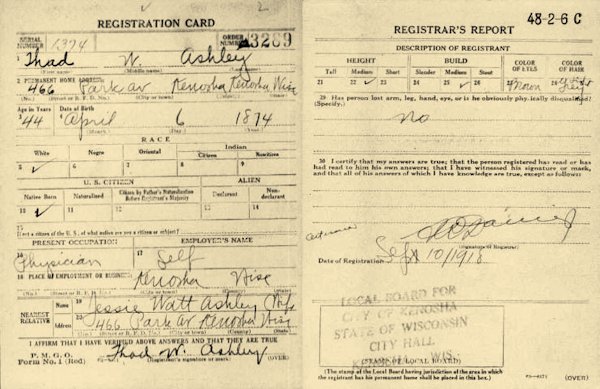 REGISTRATION CARD
SERIAL NUMBER 1374
ORDER NUMBER A3289
1 Thad W. Ashley
(First name) (Middle name) (Last name)
2 PERMANENT HOME ADDRESS:
466 Park av Kenosha Kenosha Wisc
(No.) (Street or R. F. D. No.) (City or town) (County) (State)
Age in Years Date of Birth
3 44 4 April 6 1874
(Month) (Day) (Year)
RACE
White Negro Oriental Indian
Citizen Noncitizen
5 ✓ 6 7 8 9
U. S. CITIZEN ALIEN
Native Born Naturalized Citizen by Father's Naturalization Before Registrant's Majority Declarant Non-declarant
10 ✓ 11 12 13 14
15 If not a citizen of the U. S., of what nation are you a citizen or subject?
PRESENT OCCUPATION EMPLOYER'S NAME
16 Physician 17 Self
18 PLACE OF EMPLOYMENT OR BUSINESS:
Kenosha Wisc
(No.) (Street or R. F. D. No.) (City or town) (County) (State)
NEAREST RELATIVE
Name 19 Jessie Watt Ashley Wife
Address 20 466 Park av Kenosha Wisc
(No.) (Street or R. F. D. No.) (City or town) (County) (State)
I AFFIRM THAT I HAVE VERIFIED ABOVE ANSWERS AND THAT THEY ARE TRUE
P. M. G. O.
Form No. 1 (Red)
Thad W. Ashley
(Registrant's signature or mark) (OVER)
48-2-6 C
REGISTRAR'S REPORT
DESCRIPTION OF REGISTRANT
HEIGHT BUILD COLOR OF EYES COLOR OF HAIR
Tall Medium Short Slender Medium Stout
21 22 ✓ 23 24 25 ✓ 26 27 Brown 28 Grey
29 Has person lost arm, leg, hand, eye, or is he obviously physically disqualified?
(Specify.)
No
30 I certify that my answers are true; that the person registered has read or has
had read to him his own answers; that I have witnessed his signature or mark,
and that all of his answers of which I have knowledge are true, except as follows:
(Signature of Registrar)
Date of Registration Sept 10/1918
LOCAL BOARD FOR
CITY OF KENOSHA
STATE OF WISCONSIN
CITY HALL
KENOSHA, WIS.
(STAMP OF LOCAL BOARD)
(The stamp of the Local Board having jurisdiction of the area in which
the registrant has his permanent home shall be placed in this box.)
(OVER)